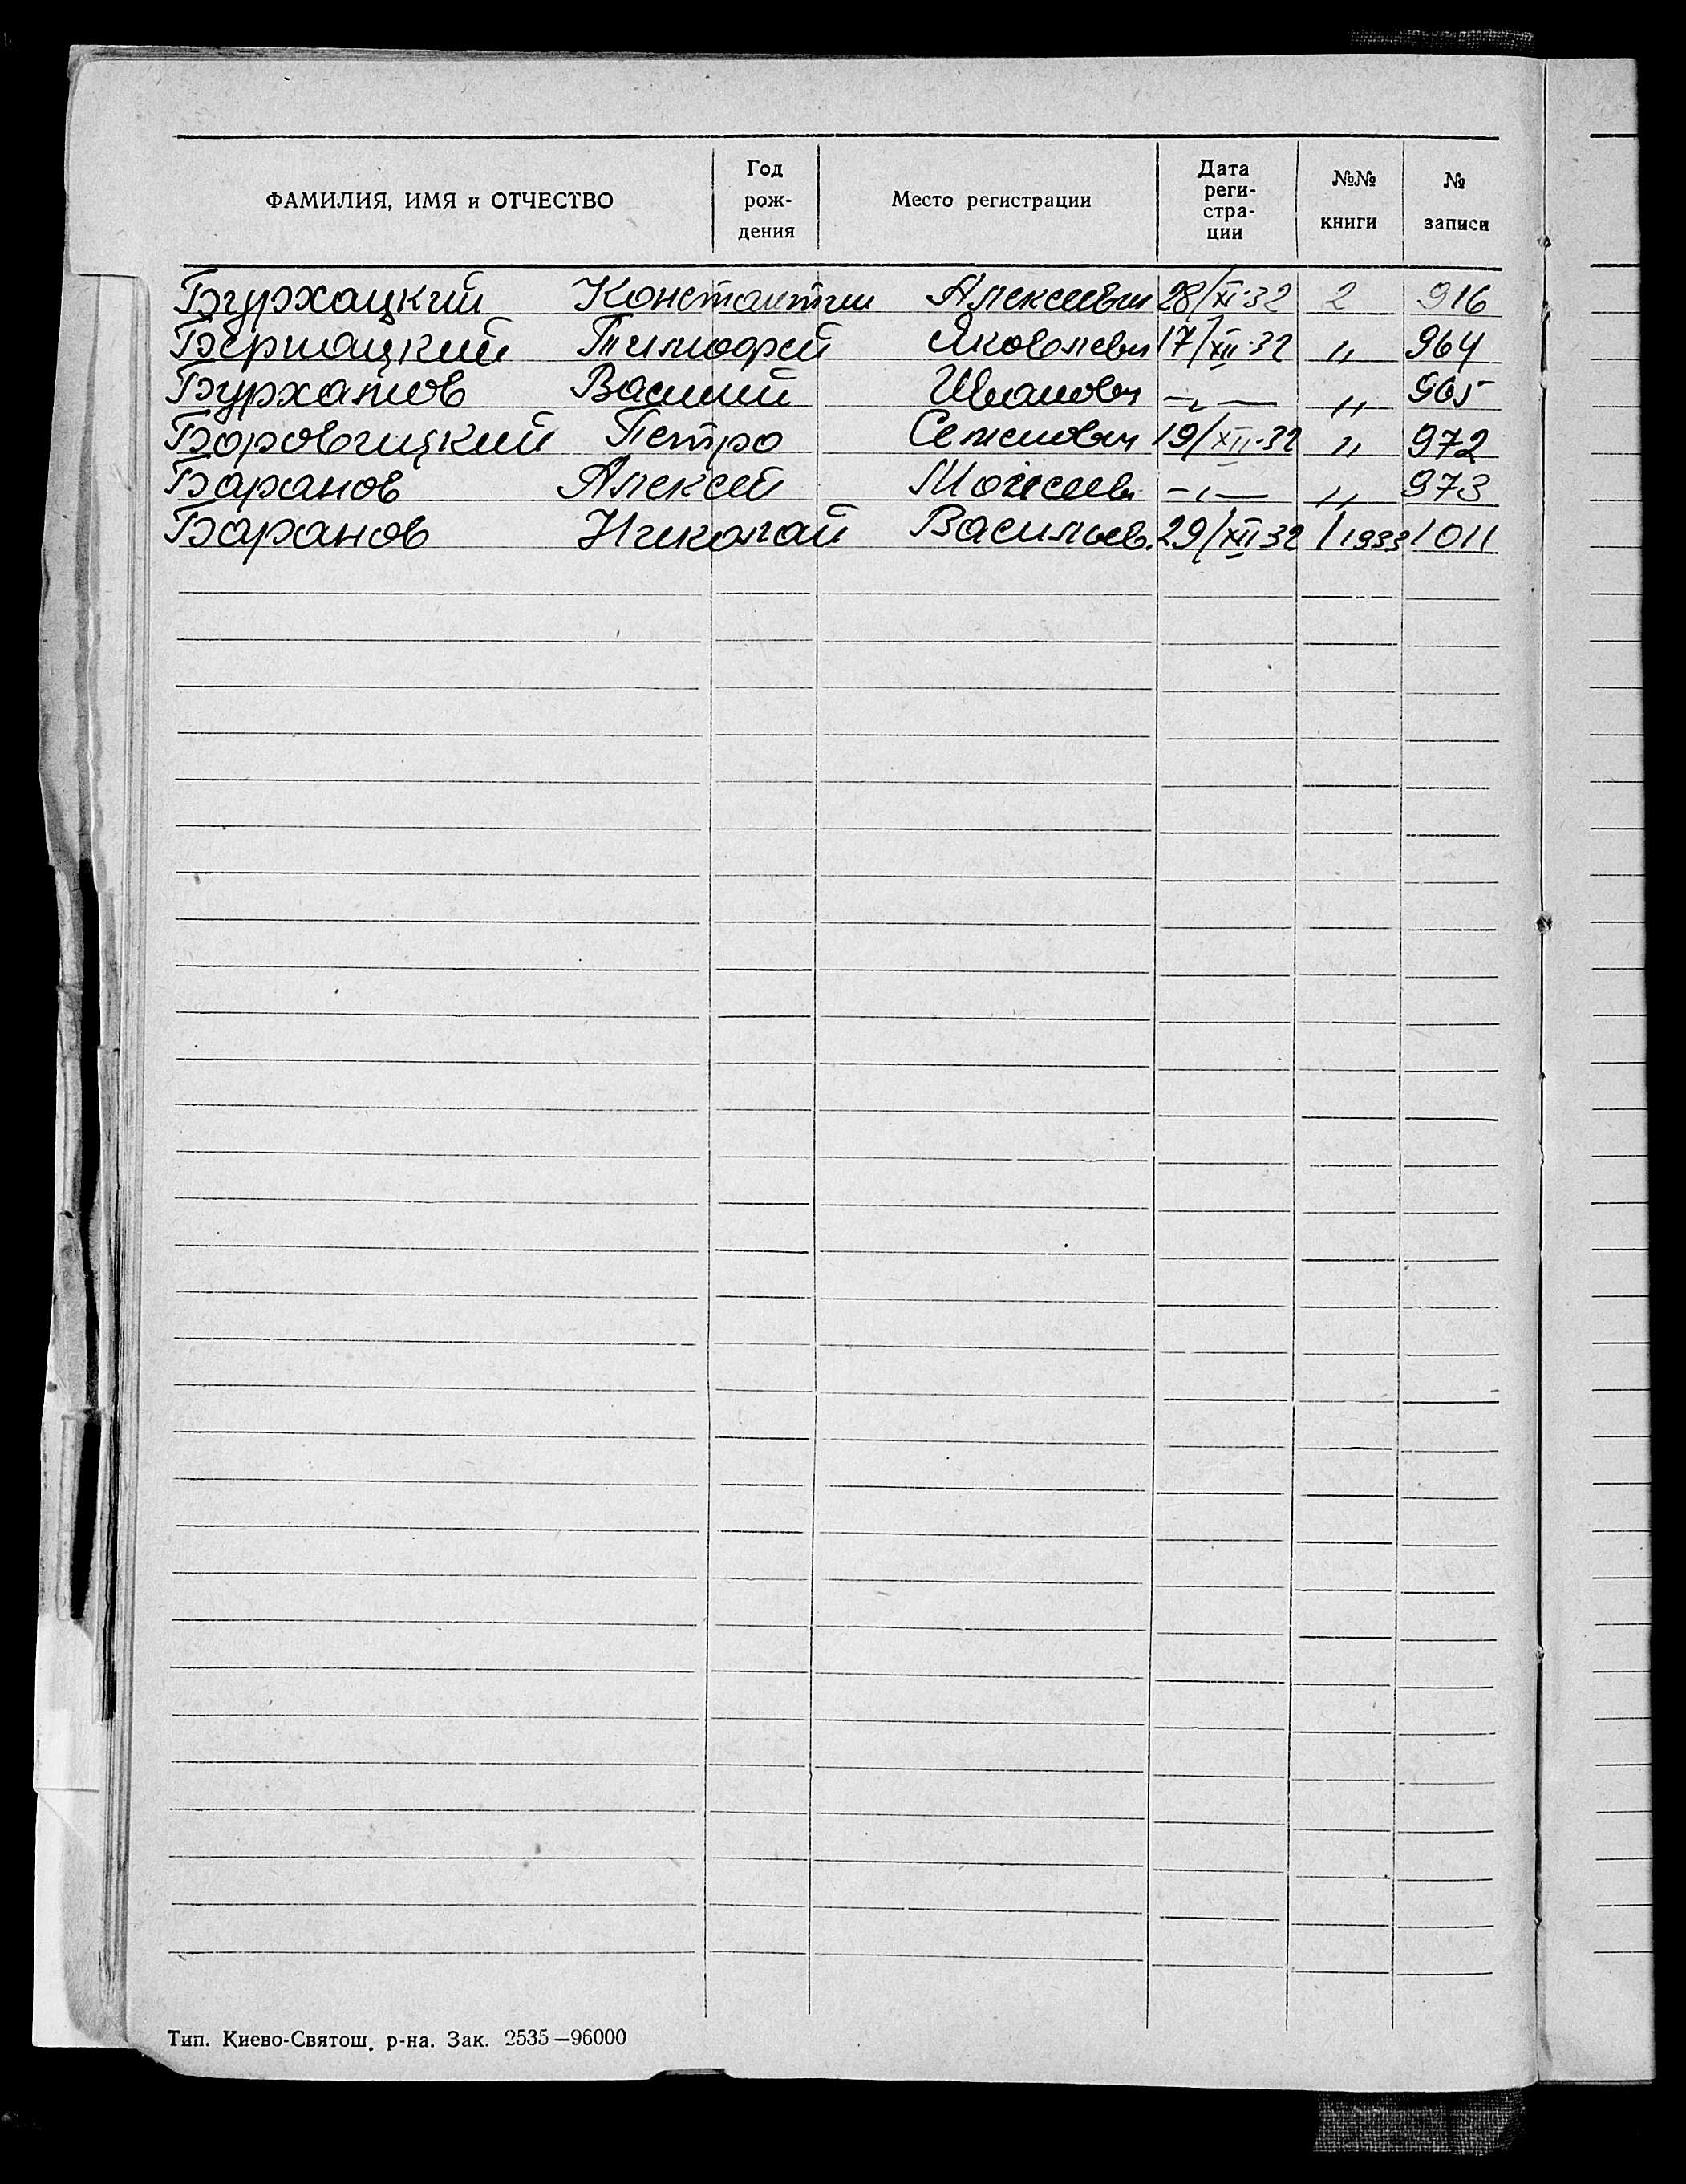 ФАМИЛИЯ, ИМЯ и ОТЧЕСТВО Год рож- дения Место регистрации Дата реги- стра- ции №№ книги № записи
Бурхацкий Константин Алексеевич 28/XI-32 2 916
Бернацкий Тимофей Яковлевич 17/XII-32 " 964
Бурханов Василий Иванович —"— " 965
Боровицкий Петро Семенович 19/XII-32 " 972
Баранов Алексей Моисеев. —"— " 973
Баранов Николай Васильев. 29/XII 32 1/1933 1011
Тип. Киево-Святош. р-на. Зак. 2535—96000